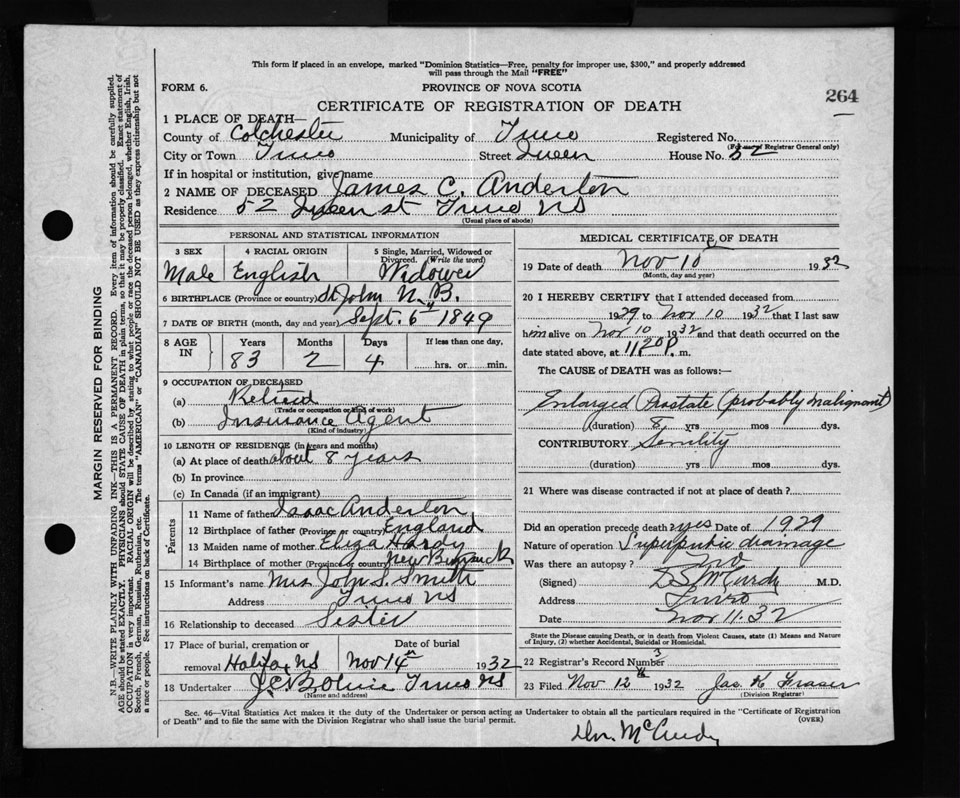 This form if placed in an envelope, marked "Dominion Statistics—Free, penalty for improper use, $300," and properly addressed
will pass through the Mail "FREE"
FORM 6.
PROVINCE OF NOVA SCOTIA
264
CERTIFICATE OF REGISTRATION OF DEATH
1 PLACE OF DEATH—
County of Colchester Municipality of Truro Registered No.
(For use of Registrar General only)
City or Town Truro Street Queen House No. 52
If in hospital or institution, give name
2 NAME OF DECEASED James C. Anderton
Residence 52 Queen st Truro NS
(Usual place of abode)
PERSONAL AND STATISTICAL INFORMATION
3 SEX 4 RACIAL ORIGIN 5 Single, Married, Widowed or Divorced. (Write the word)
Male English Widower
6 BIRTHPLACE (Province or country) St John N.B.
7 DATE OF BIRTH (month, day and year) Sept. 6 1849
8 AGE IN Years Months Days If less than one day,
83 2 4 hrs. or min.
9 OCCUPATION OF DECEASED
(a) Retired
(Trade or occupation or kind of work)
(b) Insurance Agent
(Kind of industry)
10 LENGTH OF RESIDENCE (in years and months)
(a) At place of death about 8 years
(b) In province
(c) In Canada (if an immigrant)
Parents
11 Name of father Isaac Anderton
12 Birthplace of father (Province or country) England
13 Maiden name of mother Eliza Hardy
14 Birthplace of mother (Province or country) New Brunswick
15 Informant's name Mrs John S. Smith
Address Truro NS
16 Relationship to deceased Sister
17 Place of burial, cremation or removal Date of burial
Halifax NS Nov 14th 1932
18 Undertaker Truro NS
(Name and address)
MEDICAL CERTIFICATE OF DEATH
19 Date of death Nov 10 1932
(Month, day and year)
20 I HEREBY CERTIFY that I attended deceased from
1929 to Nov 10 1932 that I last saw
him alive on Nov 10 1932 and that death occurred on the
date stated above, at 11.20 P. m.
The CAUSE of DEATH was as follows:—
Enlarged Prostate (probably malignant)
(duration) 8 yrs mos. dys.
CONTRIBUTORY Senility
(duration) yrs mos dys.
21 Where was disease contracted if not at place of death?
Did an operation precede death? yes Date of 1929
Nature of operation Suprapubic drainage
Was there an autopsy? no
(Signed) D.S. McCurdy M.D.
Address Truro
Date Nov 11. 32
State the Disease causing Death, or in death from Violent Causes, state (1) Means and Nature
of Injury, (2) whether Accidental, Suicidal or Homicidal.
22 Registrar's Record Number
23 Filed Nov 12th 1932 Jas. K Fraser
(Division Registrar)
Sec. 46—Vital Statistics Act makes it the duty of the Undertaker or person acting as Undertaker to obtain all the particulars required in the "Certificate of Registration
of Death" and to file the same with the Division Registrar who shall issue the burial permit. (OVER)
Dr. McCurdy
MARGIN RESERVED FOR BINDING
N.B.—WRITE PLAINLY WITH UNFADING INK—THIS IS A PERMANENT RECORD. Every item of information should be carefully supplied.
AGE should be stated EXACTLY. PHYSICIANS should STATE CAUSE OF DEATH in plain terms, so that it may be properly classified. Exact statement of
OCCUPATION is very important. RACIAL ORIGIN will be described by stating to what people or race the deceased person belonged, whether English, Irish,
Scotch, French, German, Russian, Ruthenian, etc. The terms "AMERICAN" or "CANADIAN" SHOULD NOT BE USED as they express citizenship but not
a race or people. See instructions on back of Certificate.